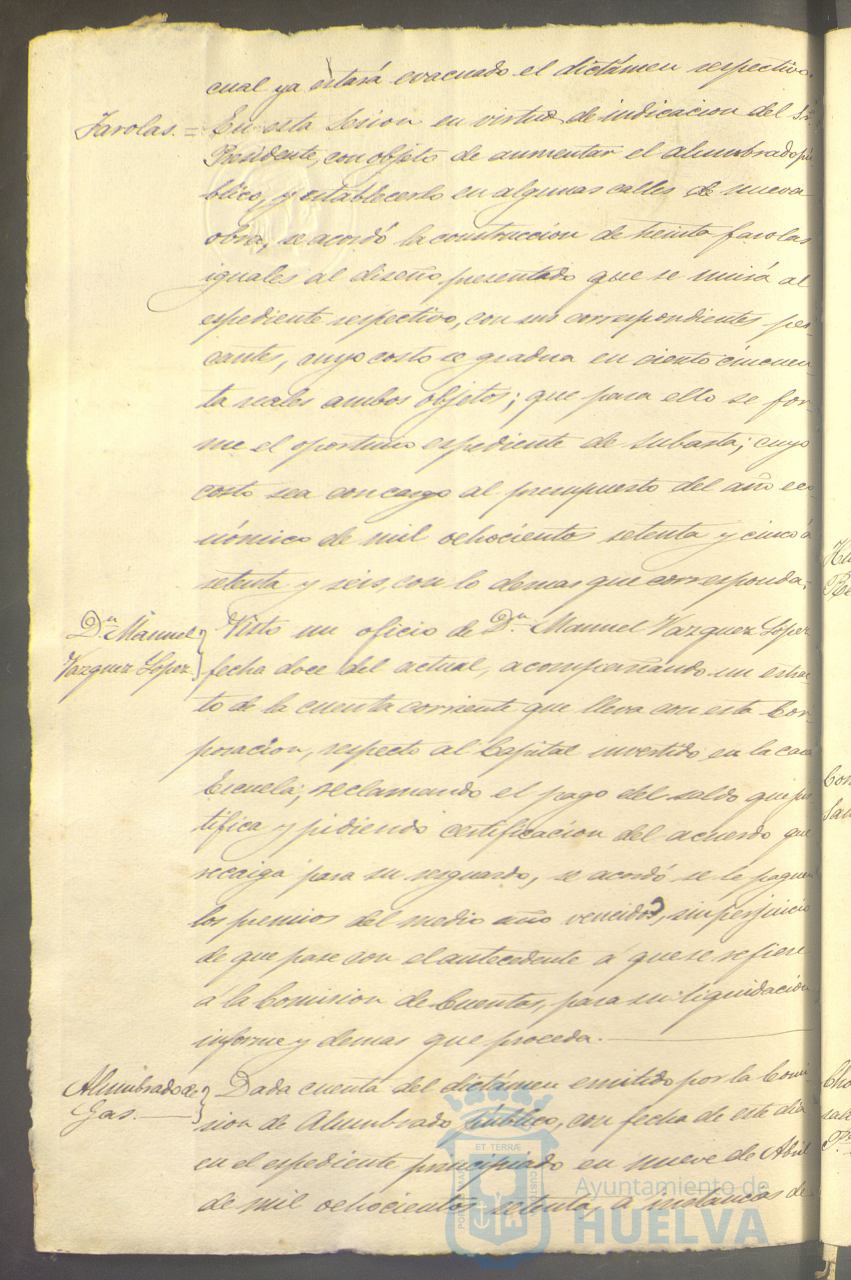 cual ya estará evacuado el dictámen respectivo.
Farolas. = En esta Sesion en virtud de indicacion del Sr.
Presidente, con objeto de aumentar el alumbrado pú
blico, y establecerlo en algunas calles de nueva
obra, se acordó la construccion de treinta farolas
iguales al diseño presentado que se unirá al
espediente respectivo, con sus correspondientes pes-
cantes, cuyo costo se gradua en ciento cincuen-
ta reales ambos objetos; que para ello se for-
me el oportuno espediente de subasta; cuyo
costo sea con cargo al presupuesto del año eco-
nómico de mil ochocientos setenta y cinco á
setenta y seis, con lo demas que corresponda.
Dn. Manuel
Vazquez Lopez.
Visto un oficio de Dn. Manuel Vazquez Lopez
fecha doce del actual, acompañando un estrac-
to de la cuenta corriente que lleva con esta Cor-
poracion, respecto al Capital invertido en la casa
Escuela; reclamando el pago del saldo que jus
tifica y pidiendo certificacion del acuerdo que
recaiga para su resguardo, se acordó se le paguen
los premios del medio año vencido, sin perjuicio
de que pase con el antecedente á que se refiere
á la Comision de Cuentas, para su liquidacion
informe y demas que proceda.
Alumbrado de
Gas.
Dada cuenta del dictámen emitido por la Comi-
sion de Alumbrado público, con fecha de este dia
en el espediente principiado en nueve de Abril
de mil ochocientos setenta, á instancias de
Ayuntamiento de
HUELVA